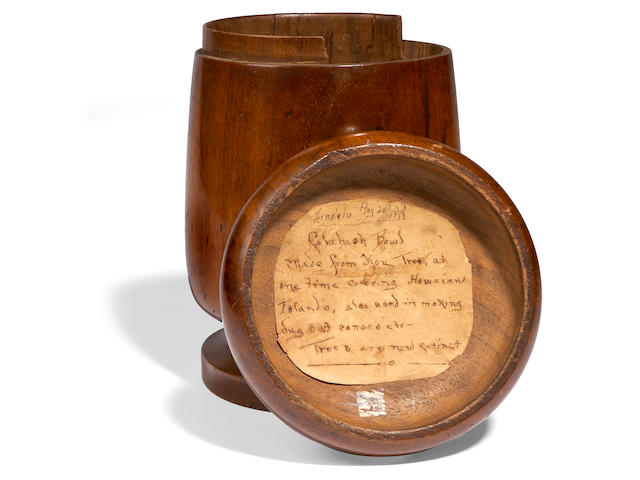 Honolulu Aug 20th 1898
Calabash Bowl
Made from Kou Tree, at
one time covering Hawaiian
Islands, also used in making
dug out canoes etc—
Trees are now extinct